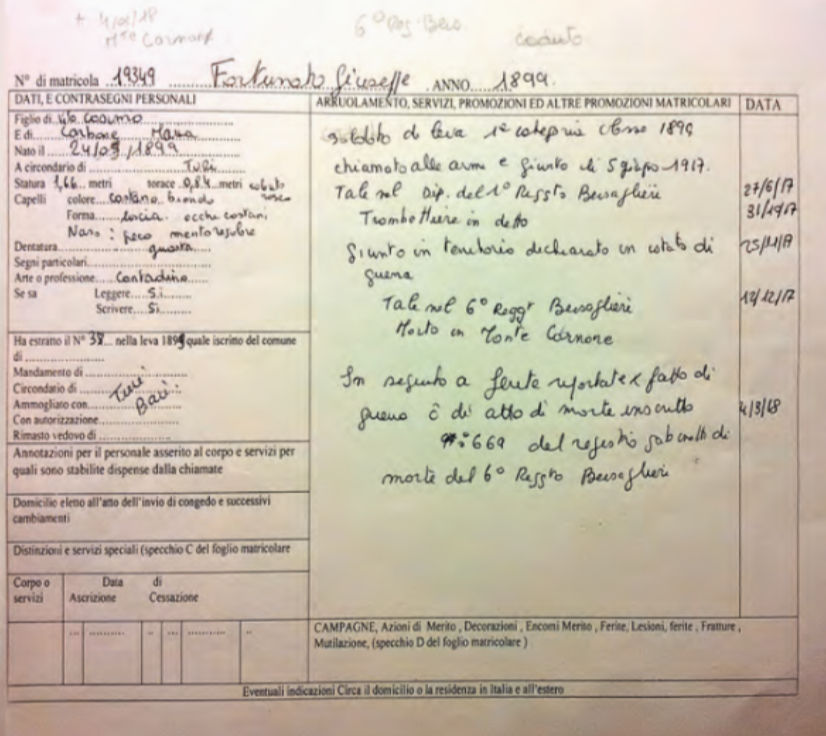 + 4/03/18
6° Reg. Bers.
M.te Cornone
caduto
N° di matricola 19349 Fortunato Giuseppe ANNO 1899
DATI, E CONTRASEGNI PERSONALI
Figlio di Vito Cosimo
E di Carbone Maria
Nato il 24/03/1899
A circondario di Turi
Statura 1,66 metri torace 0,84 metri
Capelli colore castano
Forma liscia occhi castani
Naso
Dentatura guasta
Segni particolari
Arte o professione Contadino
Se sa Leggere Si
Scrivere Si
Ha estrano il N° 38 nella leva 1899 quale iscrino del comune
di
Mandamento di
Circondario di Turi
Ammogliato con Bari
Con autorizzazione
Rimasto vedovo di
Annotazioni per il personale asserito al corpo e servizi per
quali sono stabilite dispense dalla chiamate
Domicilio eleno all'atto dell'invio di congedo e successivi
cambiamenti
Distinzioni e servizi speciali (specchio C del foglio matricolare
Corpo o Data di
servizi Ascrizione Cessazione
ARRUOLAMENTO, SERVIZI, PROMOZIONI ED ALTRE PROMOZIONI MATRICOLARI DATA
soldato di leva 1° categoria classe 1899
chiamato alle armi e giunto li 5 giugno 1917.
Tale nel Dip. del 1° Reggto Bersaglieri 27/6/17
Trombettiere in detto 31/10/17
giunto in territorio dichiarato in istato di 25/11/17
guerra
Tale nel 6° Reggt Bersaglieri 12/12/17
Morto in Monte Cornone
In seguito a ferite riportate x fatto di
guerra di atto di morte inscritto 4/3/68
N°: 669 del registro di
morte del 6° Reggto Bersaglieri
CAMPAGNE, Azioni di Merito , Decorazioni , Encomi Merito , Ferite, Lesioni, ferite , Fratture ,
Mutilazione, (specchio D del foglio matricolare )
Eventuali indicazioni Circa il domicilio o la residenza in Italia e all'estero